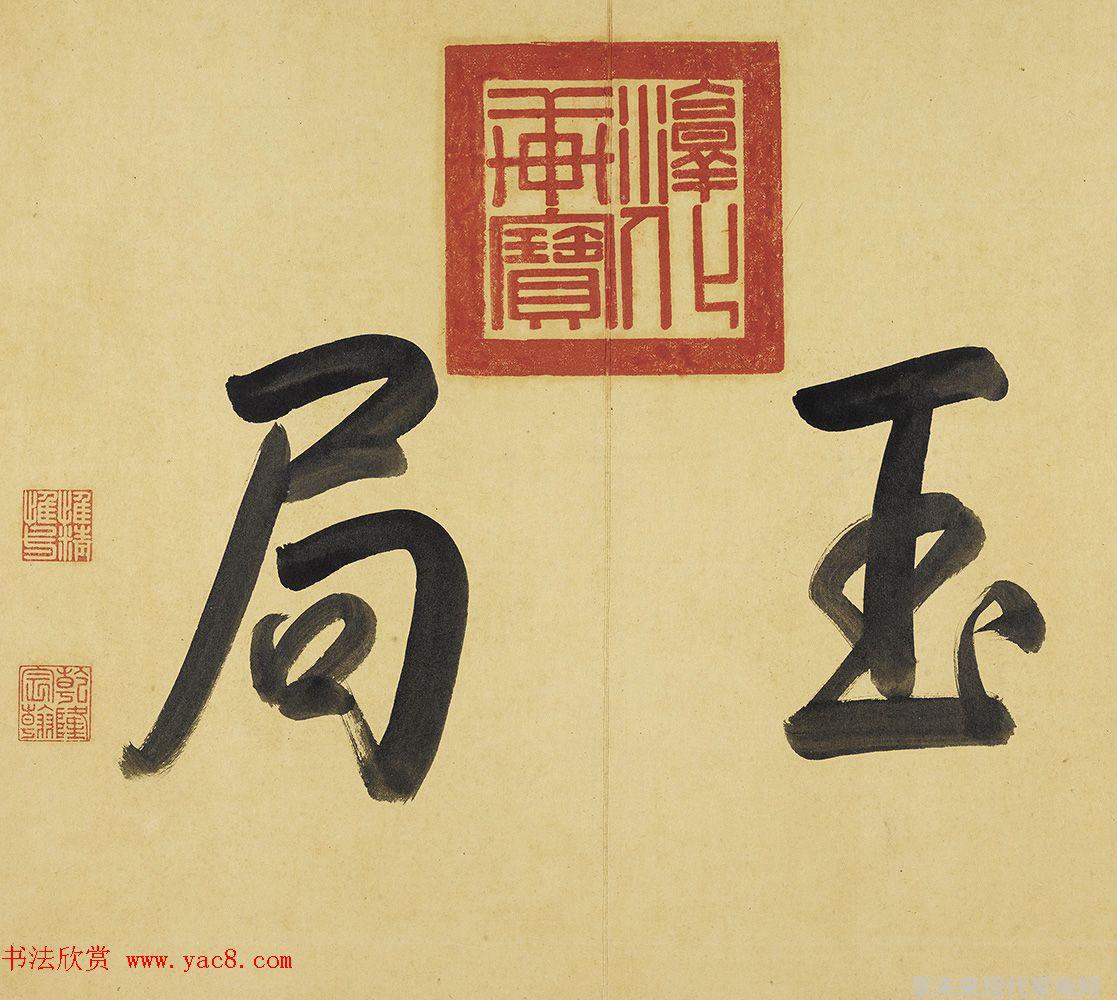 淳化軒寶
玉局
惟精惟一
乾隆宸翰
书法欣赏 www.yac8.com